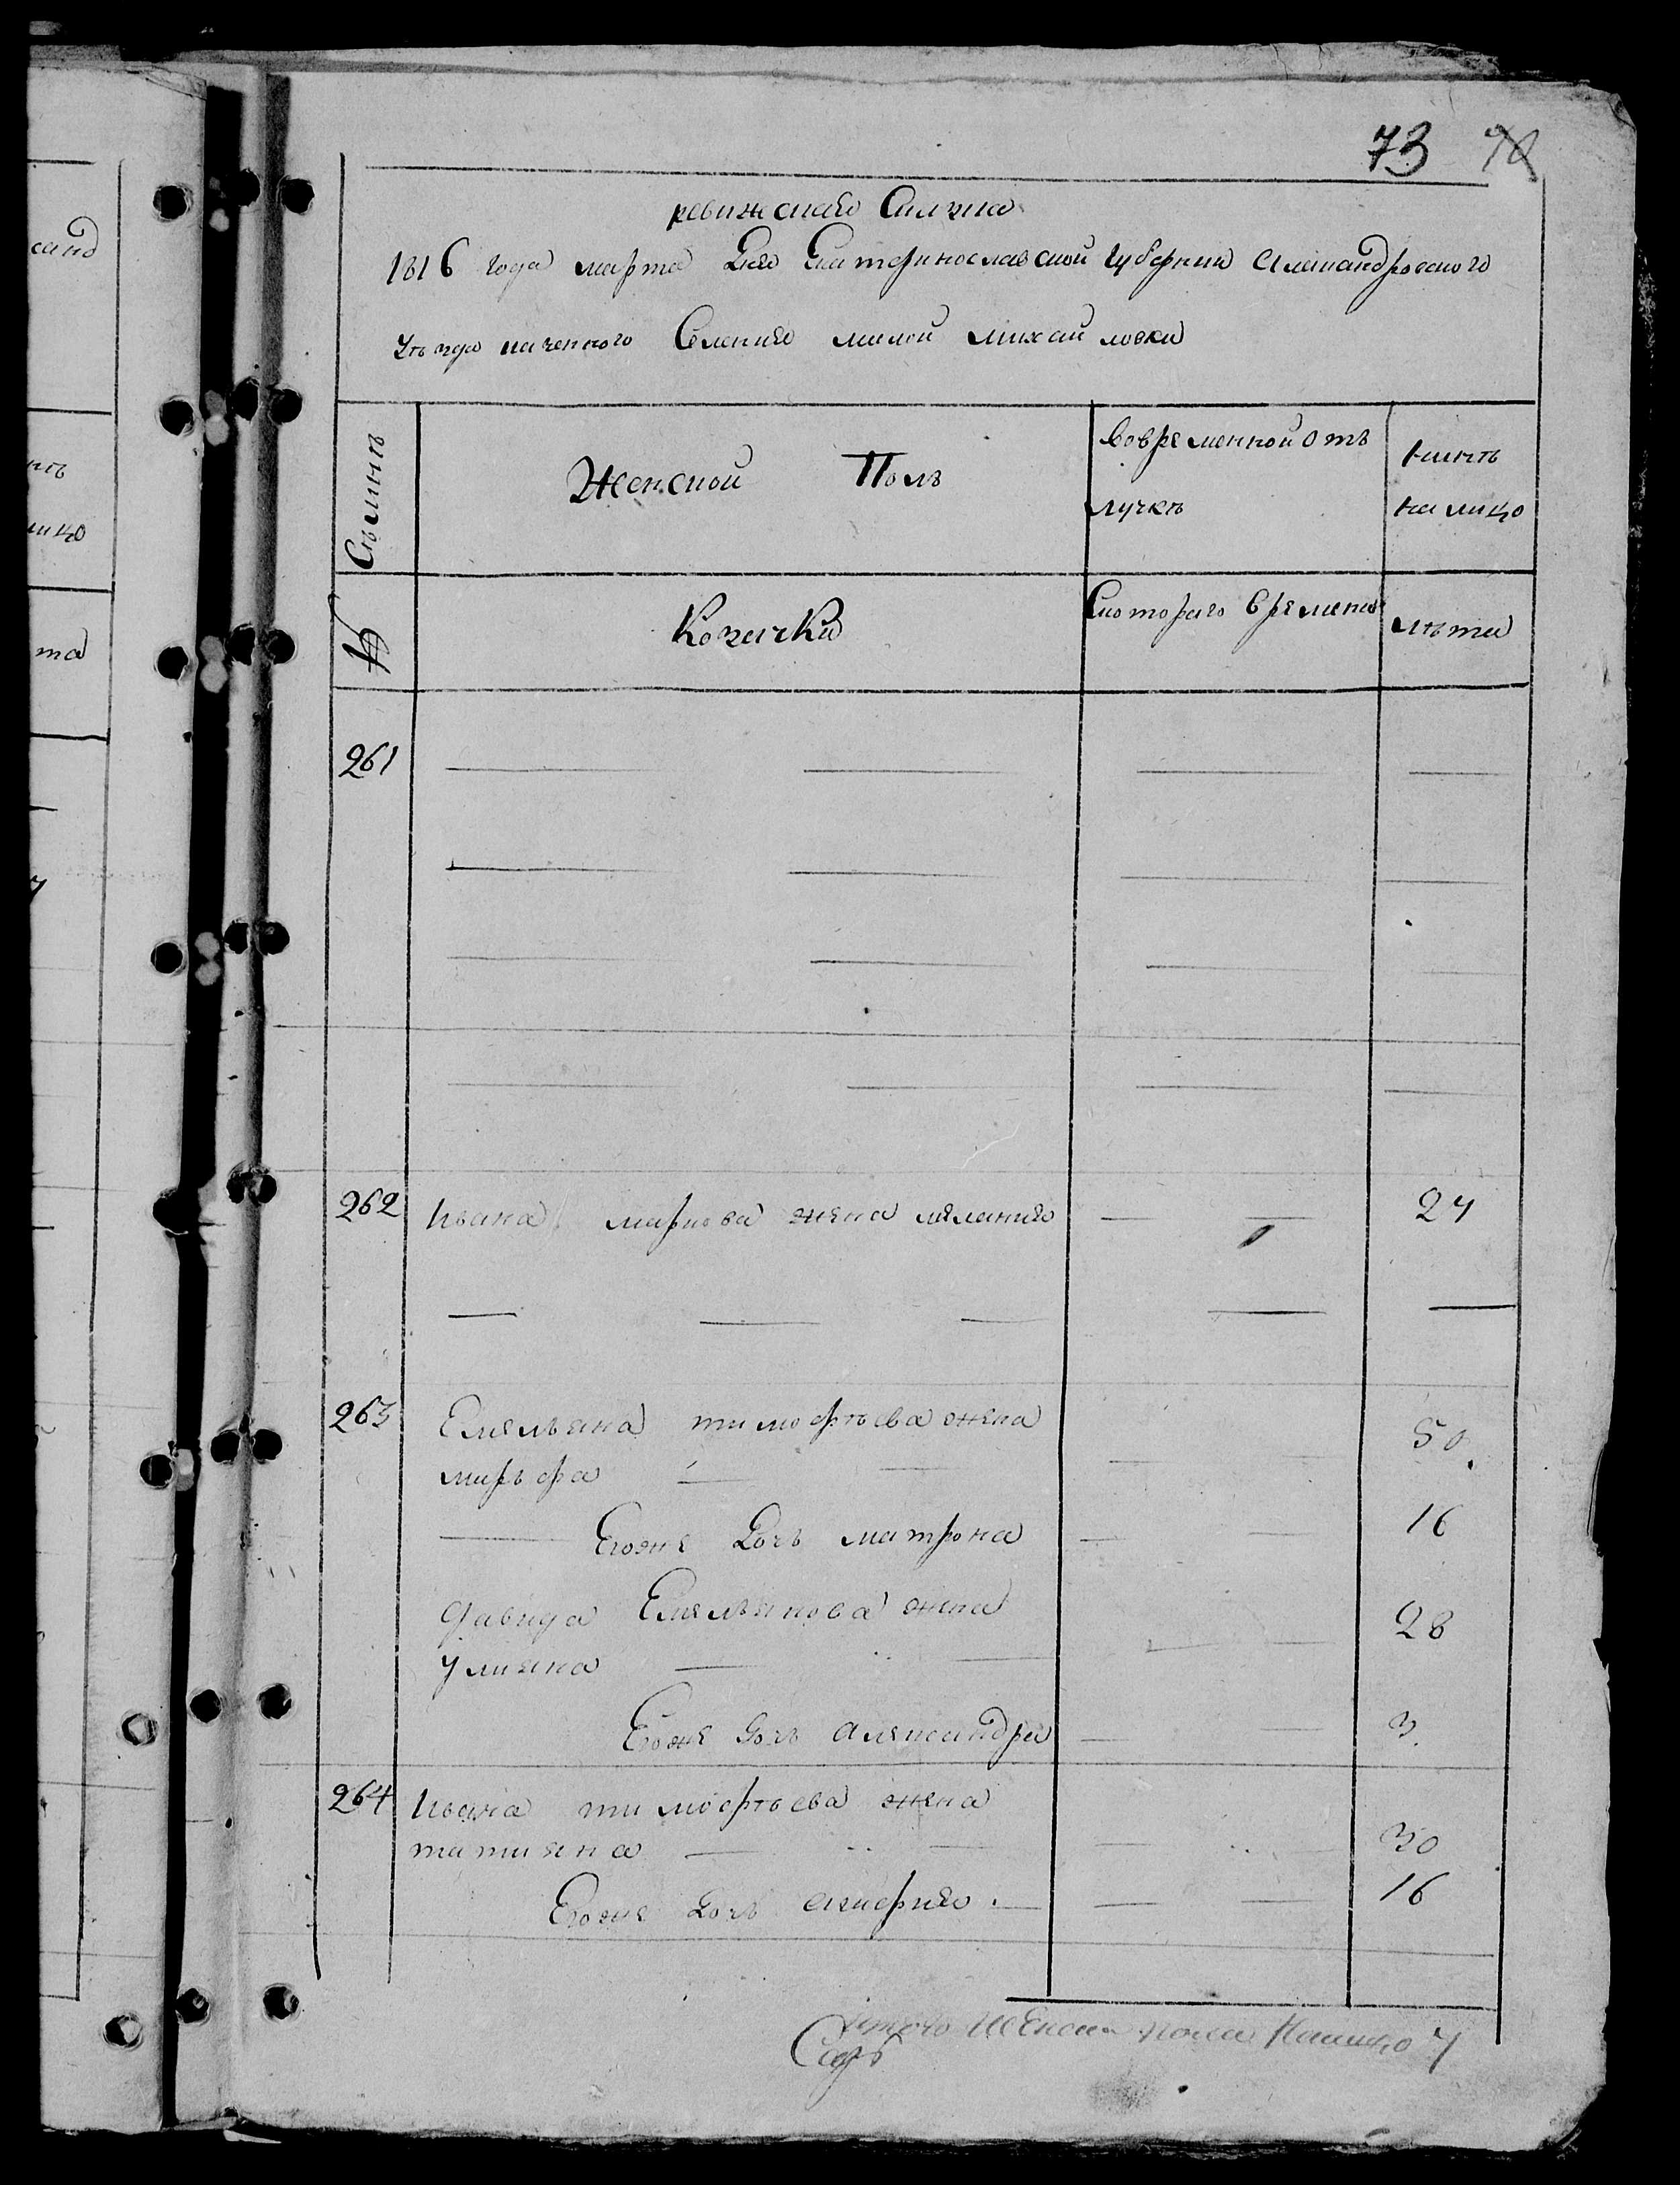 73 70
ревижская Скаска
1816 года марта Дня Екатеринославской губернии Александровского
уѣзда казенного Селения малой михайловки
Семьи
Женской Полъ
Вовременной отъ
лучкѣ
Нынѣ
на лицо
№
Козачки
Скотораго Времени
лѣта
261
262 Ивана маркова жена мелания 24
263 Емельяна тимофѣева жена
марфа 50
Егоже Дочь матрона 16
Давида Емельянова жена
улияна 28
Егоже Дочь александра 3
264 Ивана тимофѣева жена
татияна 30
Егоже Дочь агафия 16
итого Женска пола Налицо 7
санд
нѣ
лицо
та